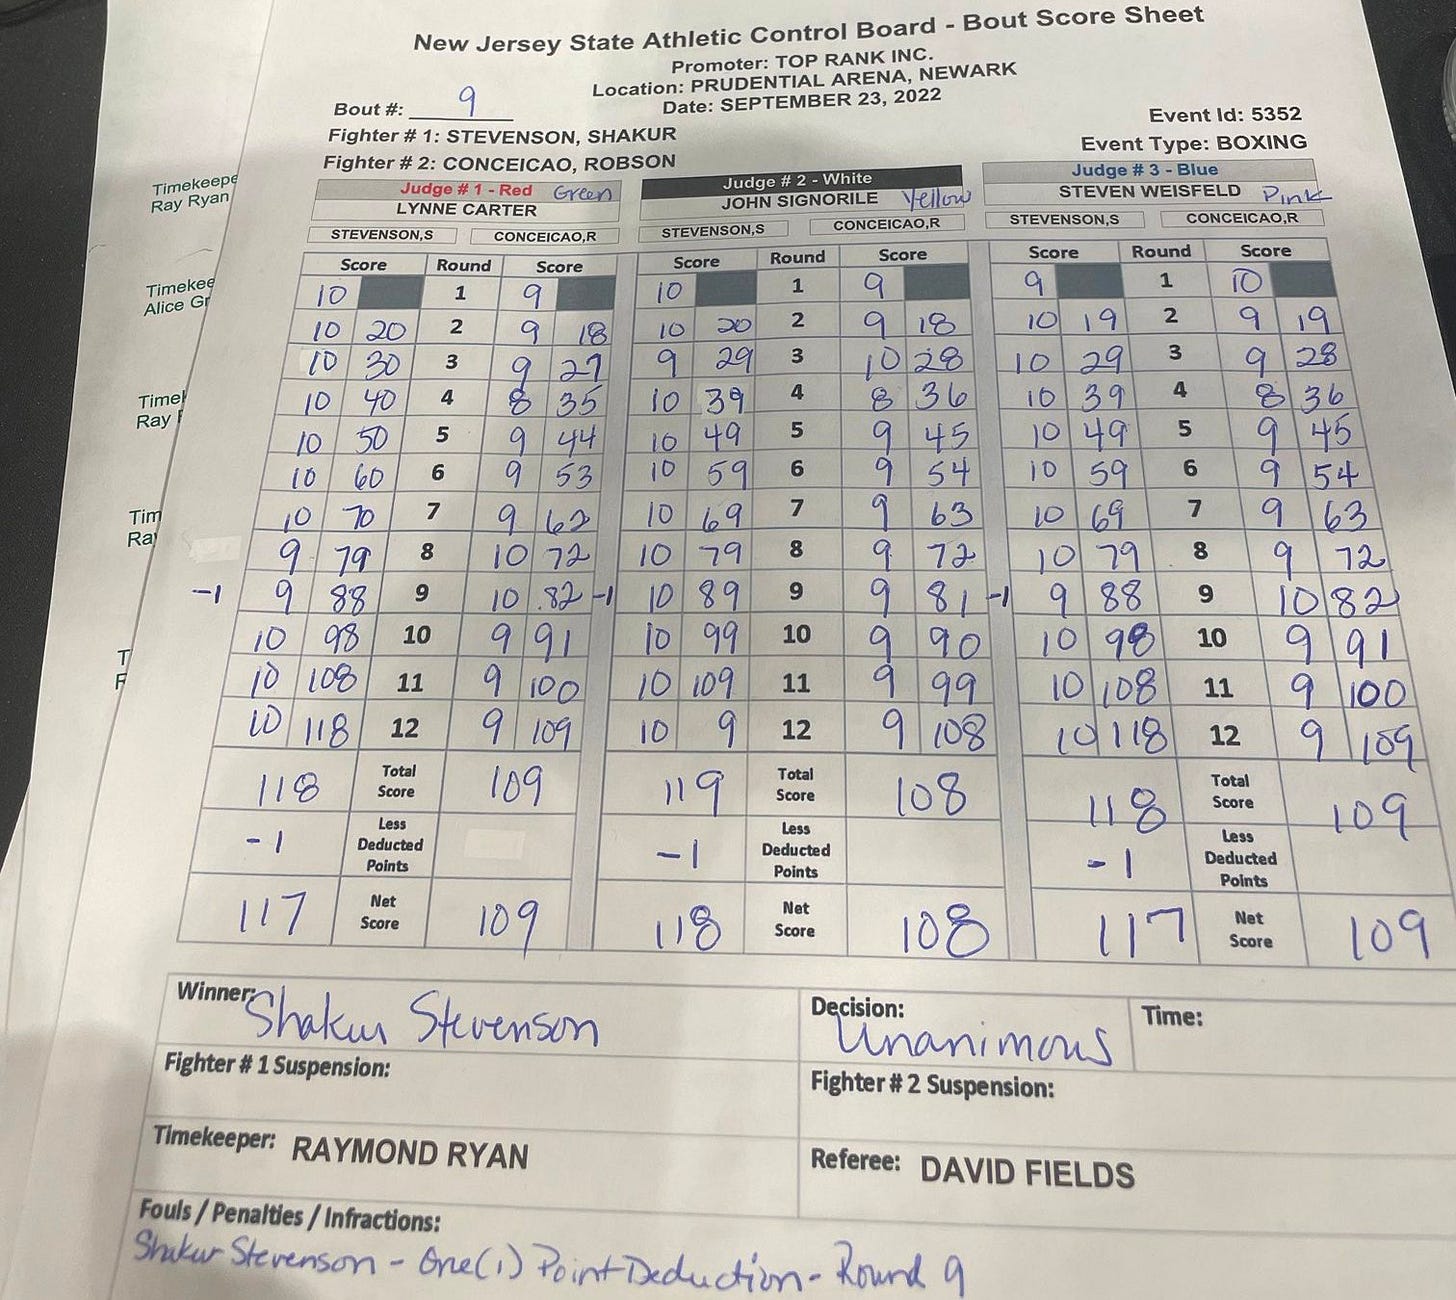 New Jersey State Athletic Control Board - Bout Score Sheet
Promoter: TOP RANK INC.
Location: PRUDENTIAL ARENA, NEWARK
Date: SEPTEMBER 23, 2022
Bout #: 9
Event Id: 5352
Fighter # 1: STEVENSON, SHAKUR
Event Type: BOXING
Fighter # 2: CONCEICAO, ROBSON
Timekeepe
Ray Ryan
Timekee
Alice Gr
Timek
Ray
Tim
Ray
T
F
Judge # 1 - Red Green Judge # 2 - White Judge # 3 - Blue
LYNNE CARTER JOHN SIGNORILE Yellow STEVEN WEISFELD Pink
STEVENSON,S CONCEICAO,R STEVENSON,S CONCEICAO,R STEVENSON,S CONCEICAO,R
Score Round Score Score Round Score Score Round Score
10 1 9 10 1 9 9 1 10
10 20 2 9 18 10 20 2 9 18 10 19 2 9 19
10 30 3 9 27 9 29 3 10 28 10 29 3 9 28
10 40 4 8 35 10 39 4 8 36 10 39 4 8 36
10 50 5 9 44 10 49 5 9 45 10 49 5 9 45
10 60 6 9 53 10 59 6 9 54 10 59 6 9 54
10 70 7 9 62 10 69 7 9 63 10 69 7 9 63
9 79 8 10 72 10 79 8 9 72 10 79 8 9 72
-1 9 88 9 10 82 -1 10 89 9 9 81 -1 9 88 9 10 82
10 98 10 9 91 10 99 10 9 90 10 98 10 9 91
10 108 11 9 100 10 109 11 9 99 10 108 11 9 100
10 118 12 9 109 10 9 12 9 108 10 118 12 9 109
118 Total Score 109 119 Total Score 108 118 Total Score 109
-1 Less Deducted Points -1 Less Deducted Points -1 Less Deducted Points
117 Net Score 109 118 Net Score 108 117 Net Score 109
Winner: Shakur Stevenson
Decision: Unanimous
Time:
Fighter # 1 Suspension:
Fighter # 2 Suspension:
Timekeeper: RAYMOND RYAN
Referee: DAVID FIELDS
Fouls / Penalties / Infractions:
Shakur Stevenson - One (1) Point Deduction - Round 9